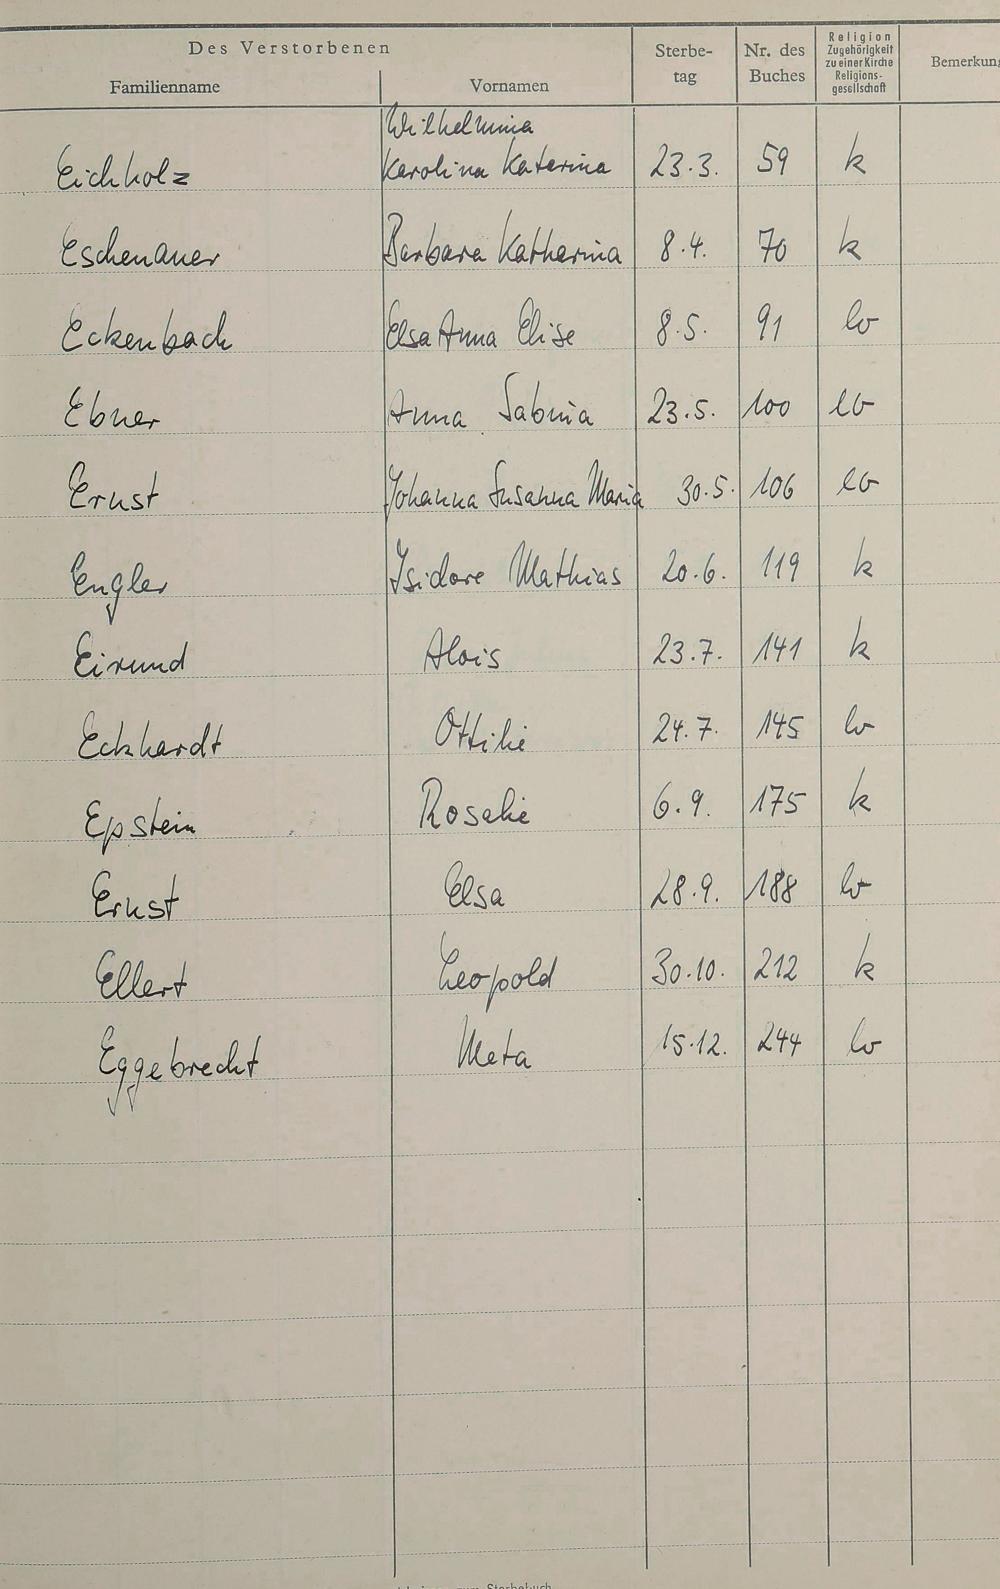 Des Verstorbenen
Familienname
Vornamen
Sterbe-
tag
Nr. des
Buches
Religion
Zugehörigkeit
zu einer Kirche
Religions-
gesellschaft
Bemerkung
Wilhelmina
Eichholz Karolina Katarina 23.3. 59 k
Eschenauer Barbara Katharina 8.4. 70 k
Eckenbach Elsa Anna Elise 8.5. 91 ev
Ebner Anna Sabina 23.5. 100 ev
Ernst Johanna Susanna Maria 30.5. 106 ev
Engler Isidore Mathias 20.6. 119 k
Eirund Alois 23.7. 141 k
Eckhardt Ottilie 24.7. 145 ev
Epstein Rosalie 6.9. 175 k
Ernst Elsa 28.9. 188 ev
Ellert Leopold 30.10. 212 k
Eggebrecht Meta 15.12. 244 ev
zum Sterbebuch